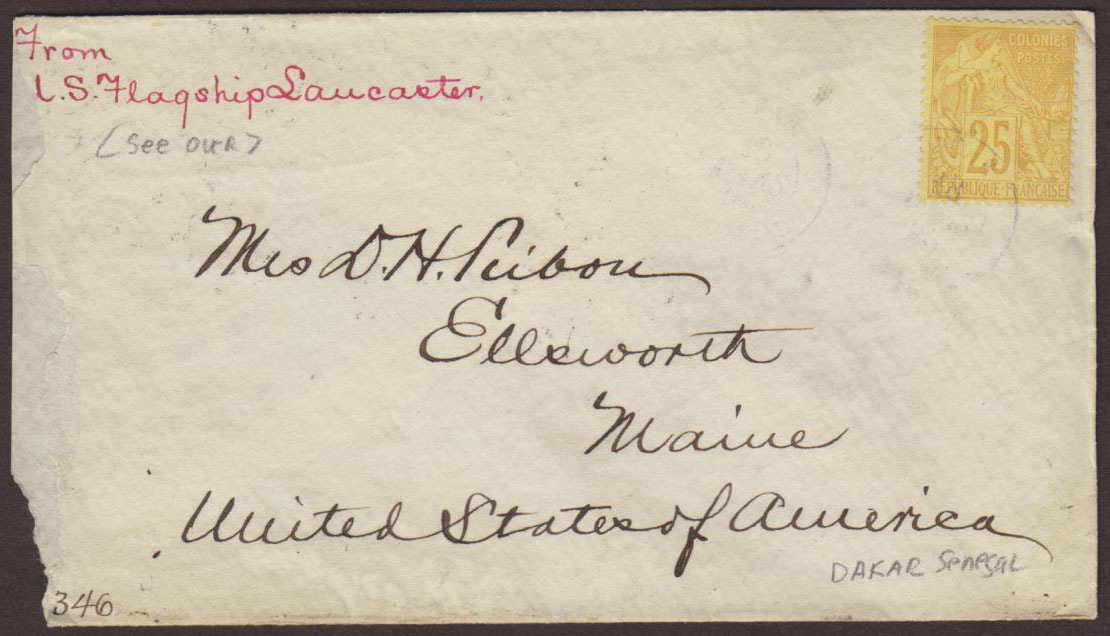 From
U.S. Flagship Lancaster.
(See over)
COLONIES
POSTES
25
RÉPUBLIQUE FRANÇAISE
Mrs D. H.
Ellsworth
Maine
United States of America
DAKAR Senegal
346